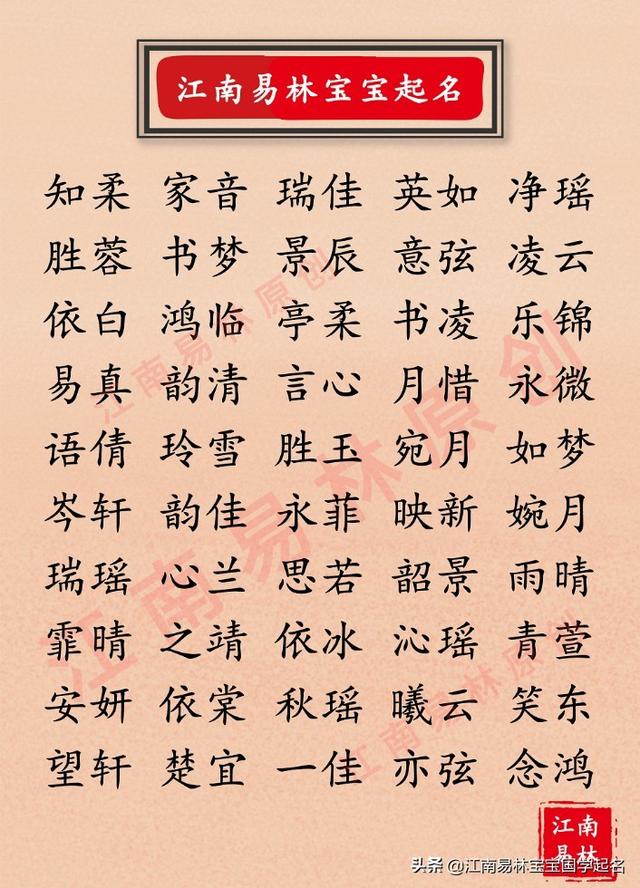 江南易林宝宝起名
知柔 家音 瑞佳 英如 净瑶
胜蓉 书梦 景辰 意弦 凌云
依白 鸿临 亭柔 书凌 乐锦
易真 韵清 言心 月惜 永微
语倩 玲雪 胜玉 宛月 如梦
岑轩 韵佳 永菲 映新 婉月
瑞瑶 心兰 思若 韶景 雨晴
霏晴 之靖 依冰 沁瑶 青萱
安妍 依棠 秋瑶 曦云 笑东
望轩 楚宜 一佳 亦弦 念鸿
江南易林原创
江南易林原创
江南易林原创
江南
易林
头条 @江南易林宝宝国学起名